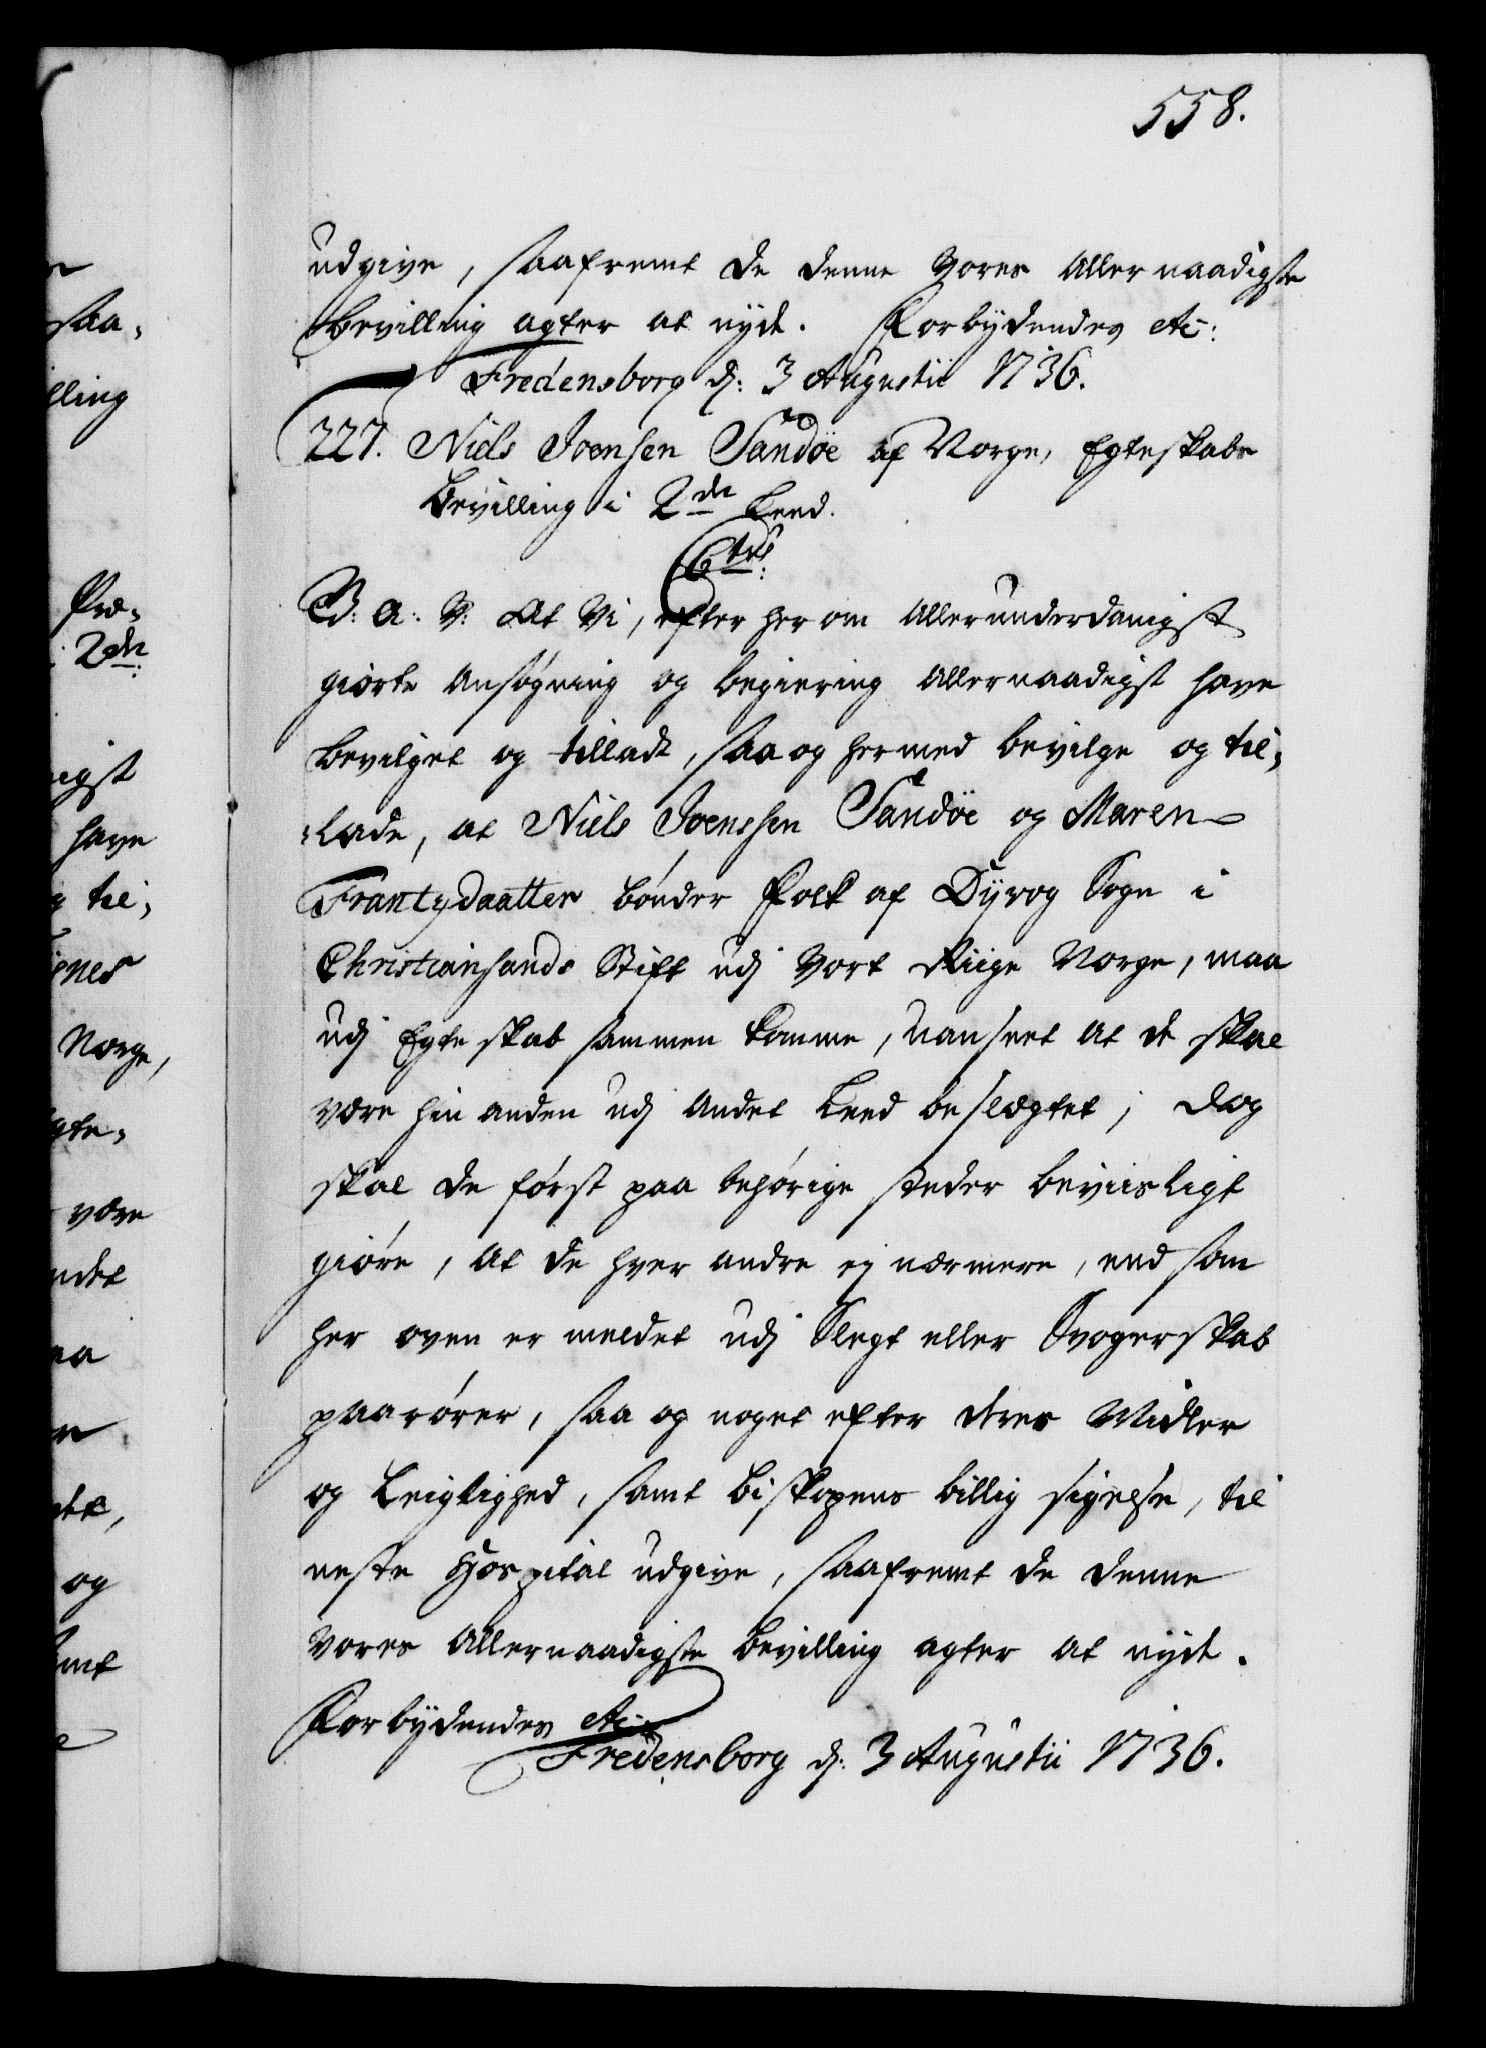 558.
udgive, saafremt de denne Vores Allernaadigste
bevilling agter at nyde. Forbydendes etc:
Fredensborg d: 3 Augustii 1736.
227. Niels Joensen Sandøe af Norge, Egteskabs
bevilling i 2den Leed.
Ctus:
B: A: V: At Vi, efter her om Allerunderdanigst
giorte Ansøgning og begiering Allernaadigst have
bevilget og tilladt, saa og hermed bevilge og til-
lade, at Niels Joenssen Sandøe og Maren
Frantzdaatter bønder Folk af Dyvog Sogn i
Christiansands Stift udj Vort Riige Norge, maa
udj Egteskab sammen komme, uanseet at de skal
være hin anden udj Andet Leed beslægtet; Dog
skal de først paa behørige steder beviisligt
giøre, at de hver andre ej nærmere, end som
her oven er meldet udj Slegt eller Svogerskab
paarører, saa og noget efter deres Midler
og Leiglighed, samt biskopens billig sigelse, til
neste Hospital udgive, saafremt de denne
Vores Allernaadigste bevilling agter at nyde.
Forbydendes etc:
Fredensborg d: 3 Augustii 1736.